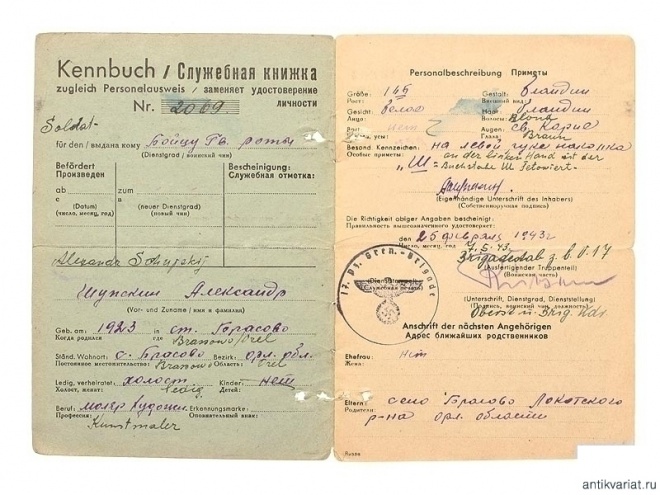 Kennbuch / Служебная книжка
zugleich Personalausweis / заменяет удостоверение
личности
Nr. 2069
Soldat
für den / выдана кому Бойцу Гв. роты
(Dienstgrad / воинский чин)
Befördert
Произведен
ab
с
zum
в
(Datum)
(число, месяц, год)
(neuer Dienstgrad)
(новый чин)
Bescheinigung:
Служебная отметка:
Alexander
Александр
(Vor- und Zuname / имя и фамилия)
Geb. am 1923 in ст. Брасово
Когда родился где Brassowo/Orel
Ständ. Wohnort с. Брасово Bezirk: орл. обл.
Постоянное местожительство Brassowo Область: Orel
Ledig, verheiratet холост Kinder нет
Холост, женат: ledig Детей:
Beruf: маляр Erkennungsmarke:
Профессия: Kunstmaler Опознавательный знак:
Personalbeschreibung Приметы
Größe: 165 Gestalt:
Рост: Внешний вид:
Gesicht: Haar:
Лицо: Волосы: Blond
нет Augen: св. Карие
усы: Глаза: Braun
Besond. Kennzeichen: на левой руке наколка
Особые приметы: "Ш" an der linken Hand ist der
Buchstabe Ш tetowiert
(Eigenhändige Unterschrift des Inhabers)
(Собственноручная подпись)
Die Richtigkeit obiger Angaben bescheinigt:
Правильность вышеозначенного удостоверяет:
den 25 февраля 1943 г
Число, месяц, год 7.5.43.
Brigadestab z.b.V. 17
(Dienststempel)
(Служебная печать)
(Ausfertigender Truppenteil)
(Воинская часть)
(Unterschrift, Dienstgrad, Dienststellung)
(Подпись, воинский чин, должность)
Oberst u. Brig. Kdr
Anschrift der nächsten Angehörigen
Адрес ближайших родственников
Ehefrau: нет
Жена:
Eltern: село Брасово Локотского
Родители: р-на орл. области
antikvariat.ru